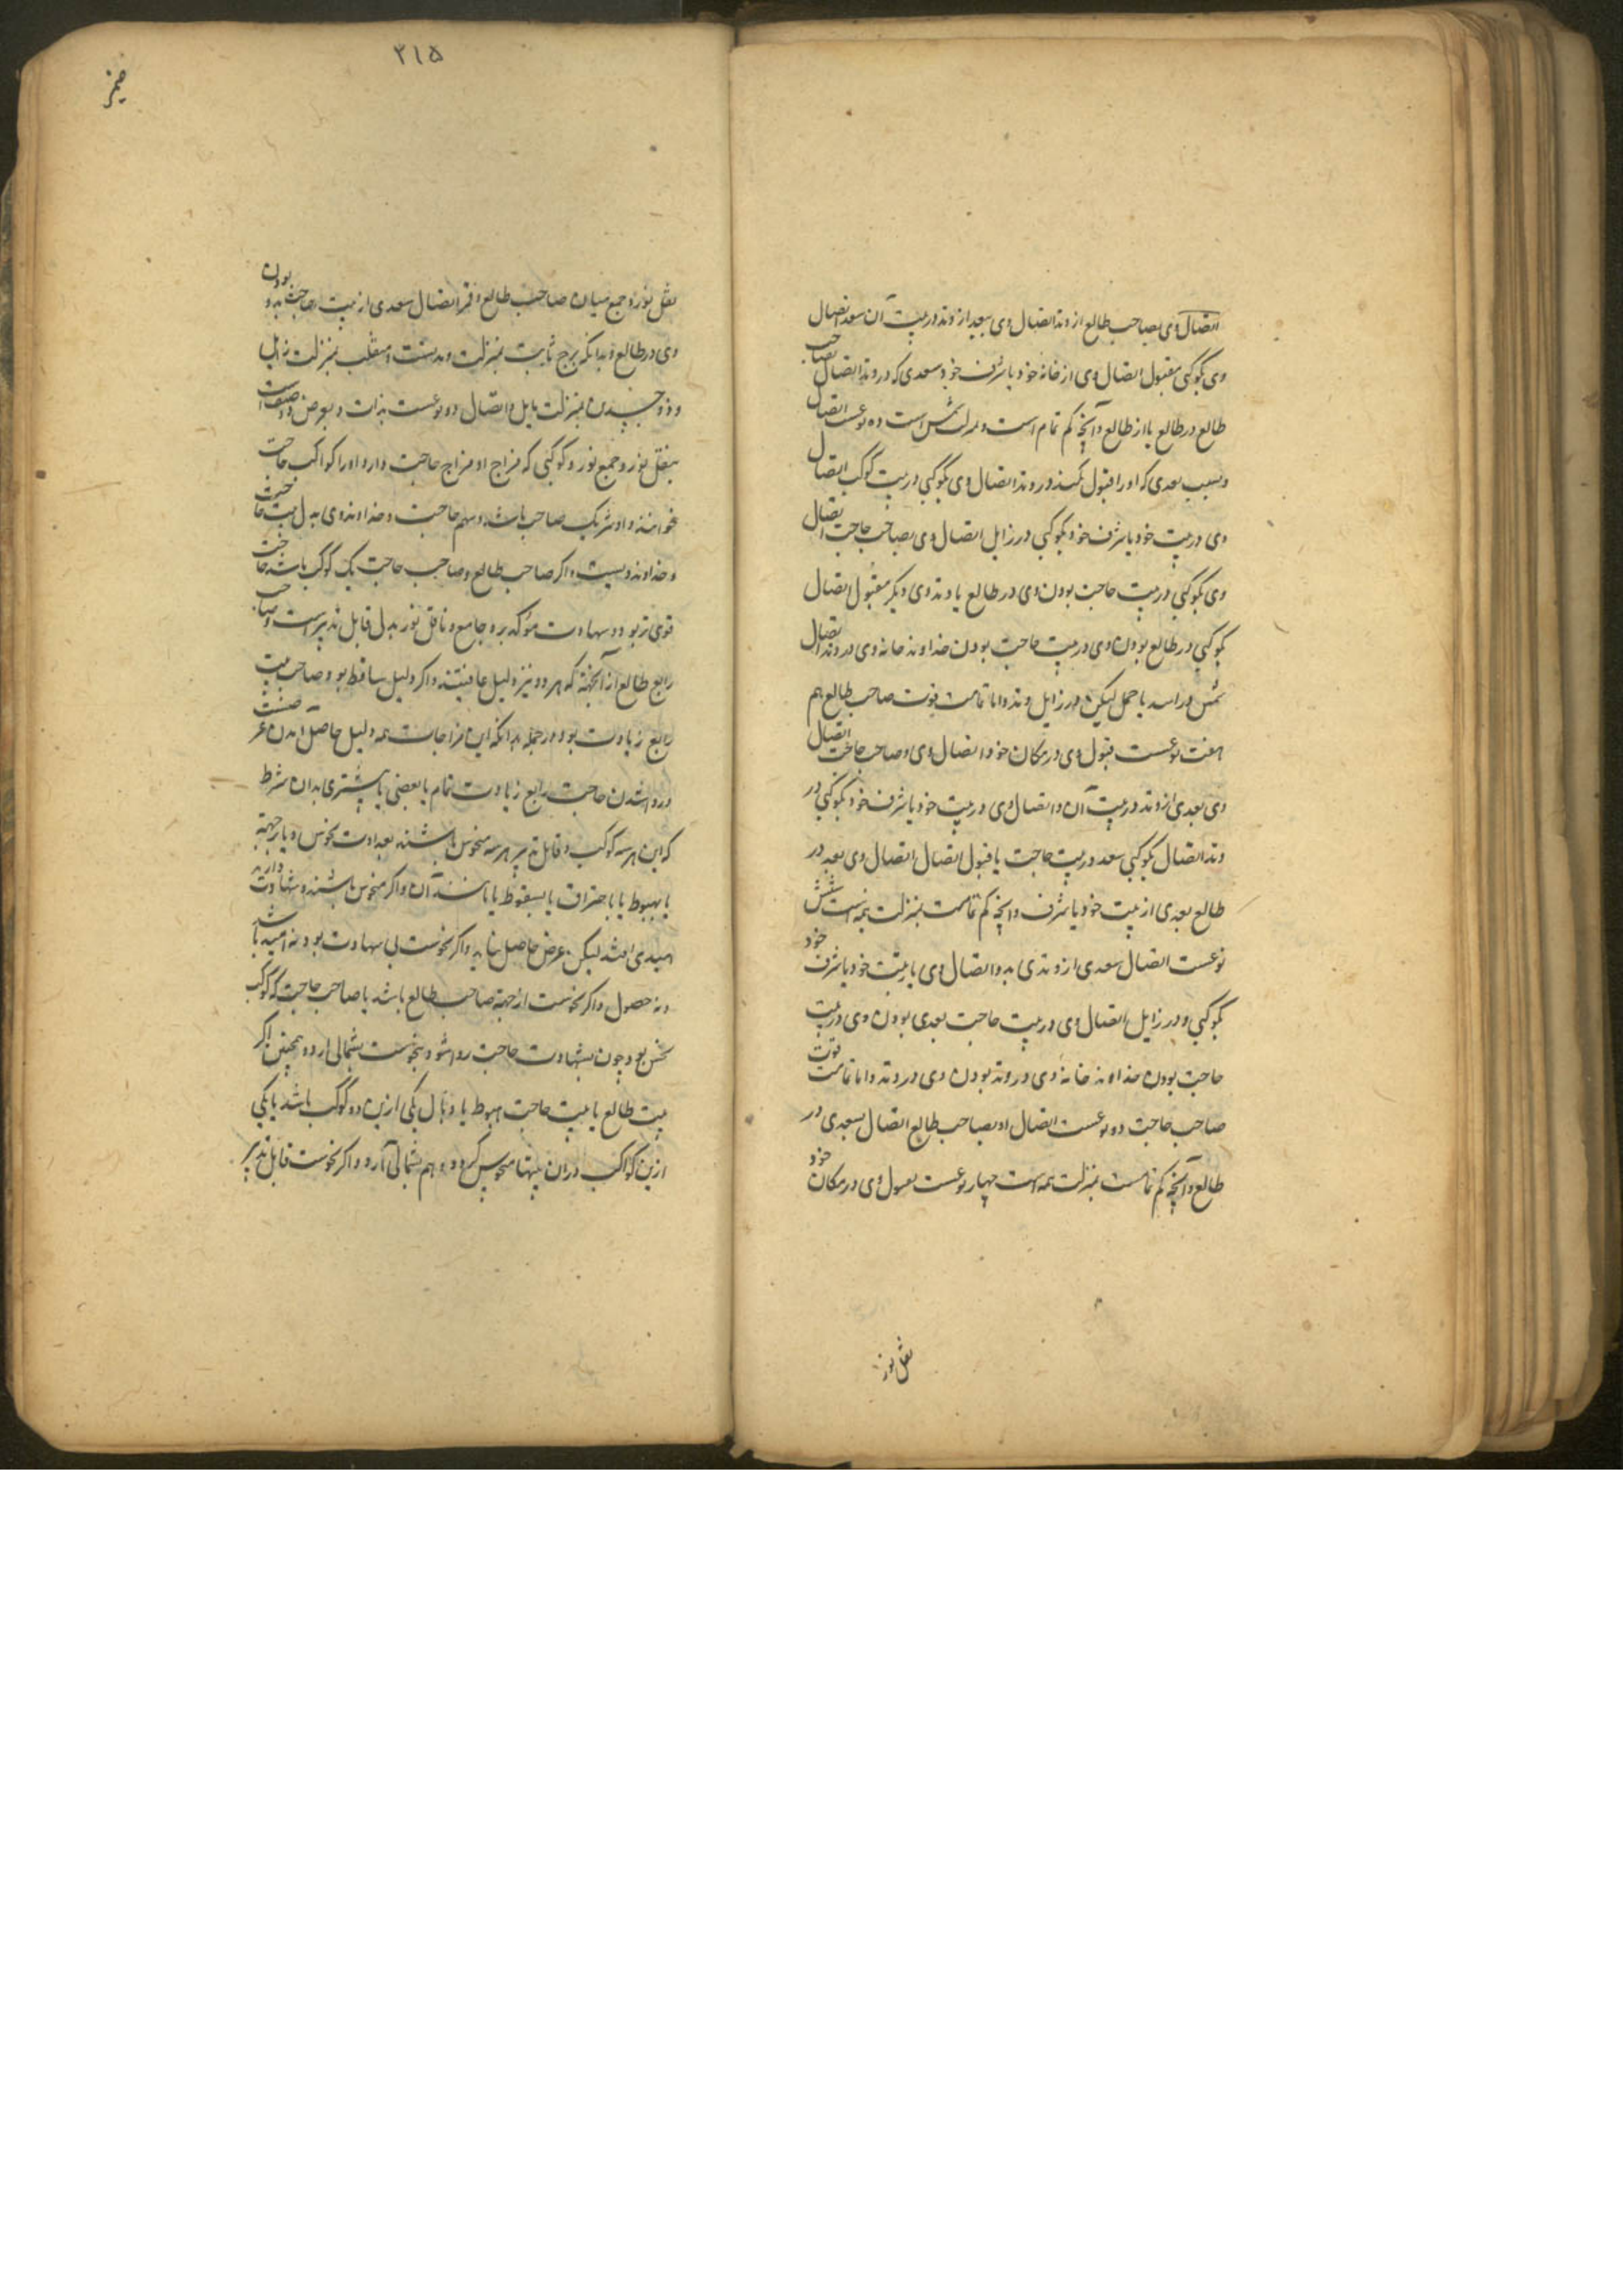 اتصال وی بصاحب طالع از وتد اتصال وی بسعد از وتد در بیت آن سعد اتصال
وی بکوکبی مقبول اتصال وی از خانهٔ خود یا شرف خود و سعدی که در وتد اتصال بصاحب
طالع در طالع یا از طالع وآنچه کم تمام است و بمنزلت شش است ده نوعست اتصال
وی در بیت خود یا شرف خود بکوکبی در زایل اتصال وی بصاحب حاجت اتصال
وی بکوکبی در بیت حاجت بودن وی در طالع یا وتدی دیگر مقبول اتصال
بکوکبی در طالع بودن وی در بیت حاجت بودن خداوند خانه وی در وتد اتصال
شمس در اسد یا حمل لیکن در زایل وتد واما تمامت قوت صاحب طالع هم
هفت نوعست قبول وی در مکان خود اتصال وی وصاحب حاجت اتصال
وی بعدی از وتد در بیت آن واتصال وی در بیت خود یا شرف خود بکوکبی در
وتد اتصال بکوکبی سعد در بیت حاجت یا قبول اتصال اتصال وی بعد در
طالع بعدی از بیت خود یا شرف وآنچه کم تمامست بمنزلت نیمه است شش
نوعست اتصال سعدی از وتدی بدو اتصال وی با بیت خود یا شرف خود
بکوکبی ودر زایل اتصال وی در بیت حاجت بعدی بودن وی در بیت
حاجت بودن خداوند خانهٔ وی در وتد بودن وی در وتد واما تمامت قوت
صاحب حاجت دو نوعست اتصال او بصاحب طالع اتصال بسعدی در
طالع وآنچه کم تمامست بمنزلت نیمه است چهار نوعست قبول وی در مکان خود
نقل نور
۳۱۵
نقل نور وجمع میان صاحب طالع وقمر اتصال سعدی از بیت حاجت بدو بودن
وی در طالع وبدانکه برج ثابت بمنزلت وتدست ومنقلب بمنزلت زایل
وذو جسدین بمنزلت مایل واتصال دو نوعست بذات وبعرض
بنقل نور وجمع نور وکوکبی که مزاج او مزاج حاجت دارد او را کواکب حاجت
خوانند واو شریک صاحب باشد وسهم حاجت وخداوند وی بدل بیت حاجت
وخداوند ویست واکر صاحب طالع وصاحب حاجت یک کوکب باشد حاجت
قوی تر بود وشهادت مؤکد بره جامع وناقل نور بدل قابل تدبیرست وصاحب
رابع طالع از آنجهة که هر دو نیز دلیل عاقبتند واکر دلیل ساقط بود وصاحب بیت
رابع زیادت بود ودر جمله بدانکه این مزاجات همه دلیل حاصل آمدن
وروا شدن حاجت رابع زیادت تمام یا بعضی یا بیشتری بدان شرط
که این هر سه کوکب وقابل تدبیر هر سه منحوس باشند بعداوت نحوس ویا رجعة
یا بهبوط یا باحتراق یا بسقوط یا مانند آن واکر منحوس باشند وشهادت دارند
امیدی افتد لیکن غرض حاصل نیاید واکر نحوست بی شهادت بود نه امید باشد
ونه حصول واکر نحوست از جهة صاحب طالع باشد یا صاحب حاجت که کوکب
نحس بود چون بشهادت حاجت روا شود بنحوست پشیمانی آرد وهمچنین اکر
بیت طالع یا بیت حاجت هبوط یا وبال یکی ازین دو کوکب باشد یا یکی
ازین کواکب در آن بیتها منحوس کردد وهم پشیمانی آرد واکر نحوست قابل تدبیر